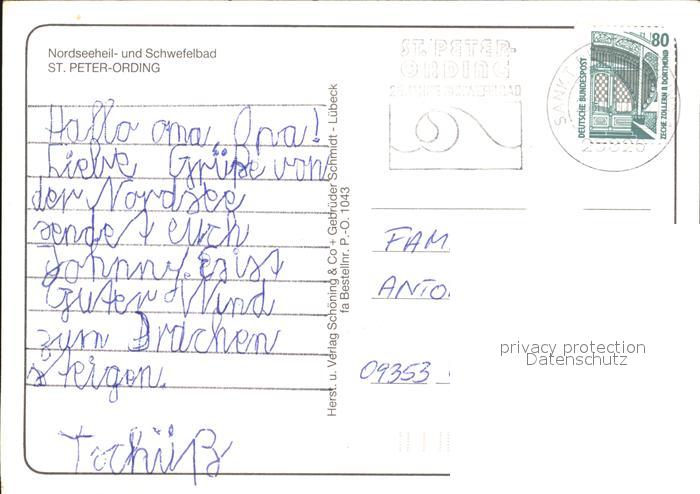 Nordseeheil- und Schwefelbad
ST. PETER-ORDING
Hallo oma, Opa!
Liebe Grüße von
der Nordsee
sendet euch
Johnny. Es ist
Guter Wind
zum Drachen
steigen.
Tschüß
Herst. u. Verlag Schöning & Co + Gebrüder Schmidt - Lübeck
fa Bestellnr. P.-O. 1043
ST. PETER-
ORDING
SANKT
80
DEUTSCHE BUNDESPOST
ZECHE ZOLLERN II, DORTMUND
FAM
ANTO
09353
privacy protection
Datenschutz